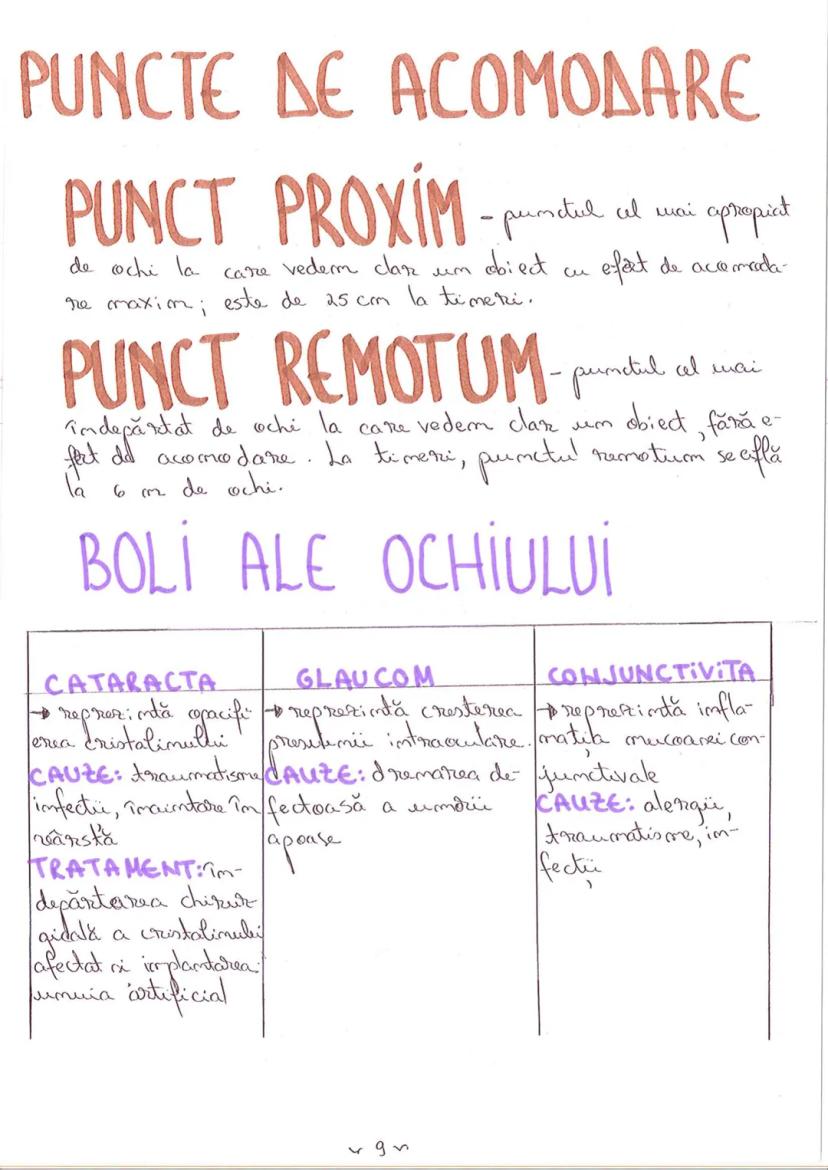 PUNCTE DE ACOMODARE
PUNCT PROXİM - punctul cel mai apropiat
de ochi la care vedem clar un obiect cu efort de acomoda-
re maxim; este de 25 cm la tineri.
PUNCT REMOTUM - punctul cel mai
îndepărtat de ochi la care vedem clar un obiect, fără e-
fort de acomodare. La tineri, punctul remotum se află
la 6 m de ochi.
BOLİ ALE OCHİULUİ
CATARACTA
→ reprezintă opacifi-
erea cristalinului
CAUZE: traumatisme
infecții, înaintare în
vârstă
TRATAMENT: în-
depărtarea chirur-
gicală a cristalinului
afectat și implantarea
unuia artificial
GLAUCOM
→ reprezintă creșterea
presiunii intraoculare.
CAUZE: drenarea de-
fectoasă a umorii
apoase
CONJUNCTİVİTA
→ reprezintă infla-
mația mucoasei con-
junctivale
CAUZE: alergii,
traumatisme, in-
fecții
~ 9 ~